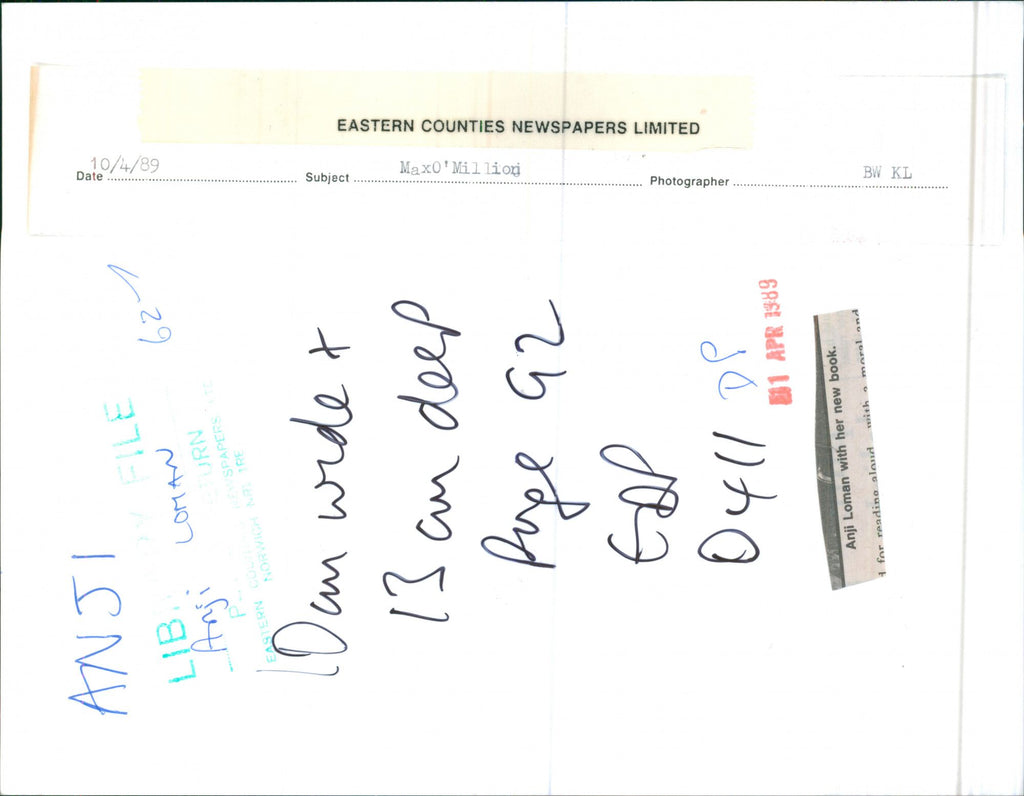 EASTERN COUNTIES NEWSPAPERS LIMITED
Date 10/4/89 Subject MaxO'Million Photographer BW KL
ANJI
62
LIB FILE
Anji LOMAN
TURN
NEWSPAPERS
EASTERN COU NORWICH NR1 1RE
10 cm wide +
13 cm deep
Page 92
EDP
D411
DP
1 APR 1989
Anji Loman with her new book.
for reading aloud, with a moral and